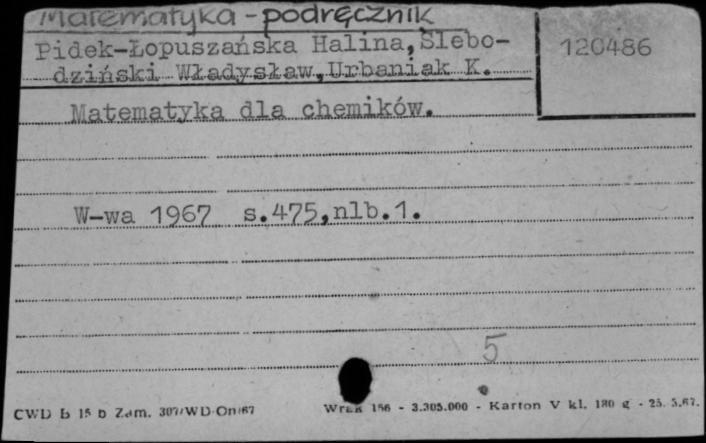 Matematyka - podręcznik
Pidek-Łopuszańska Halina, Ślebo-
dziński Władysław, Urbaniak K.
120486
Matematyka dla chemików.
W-wa 1967 s.475,nlb.1.
5
CWD b 15 b Zam. 307/WD-On/67
156 - 3.305.000 - Karton V kl. 180 g - 25. 5.67.